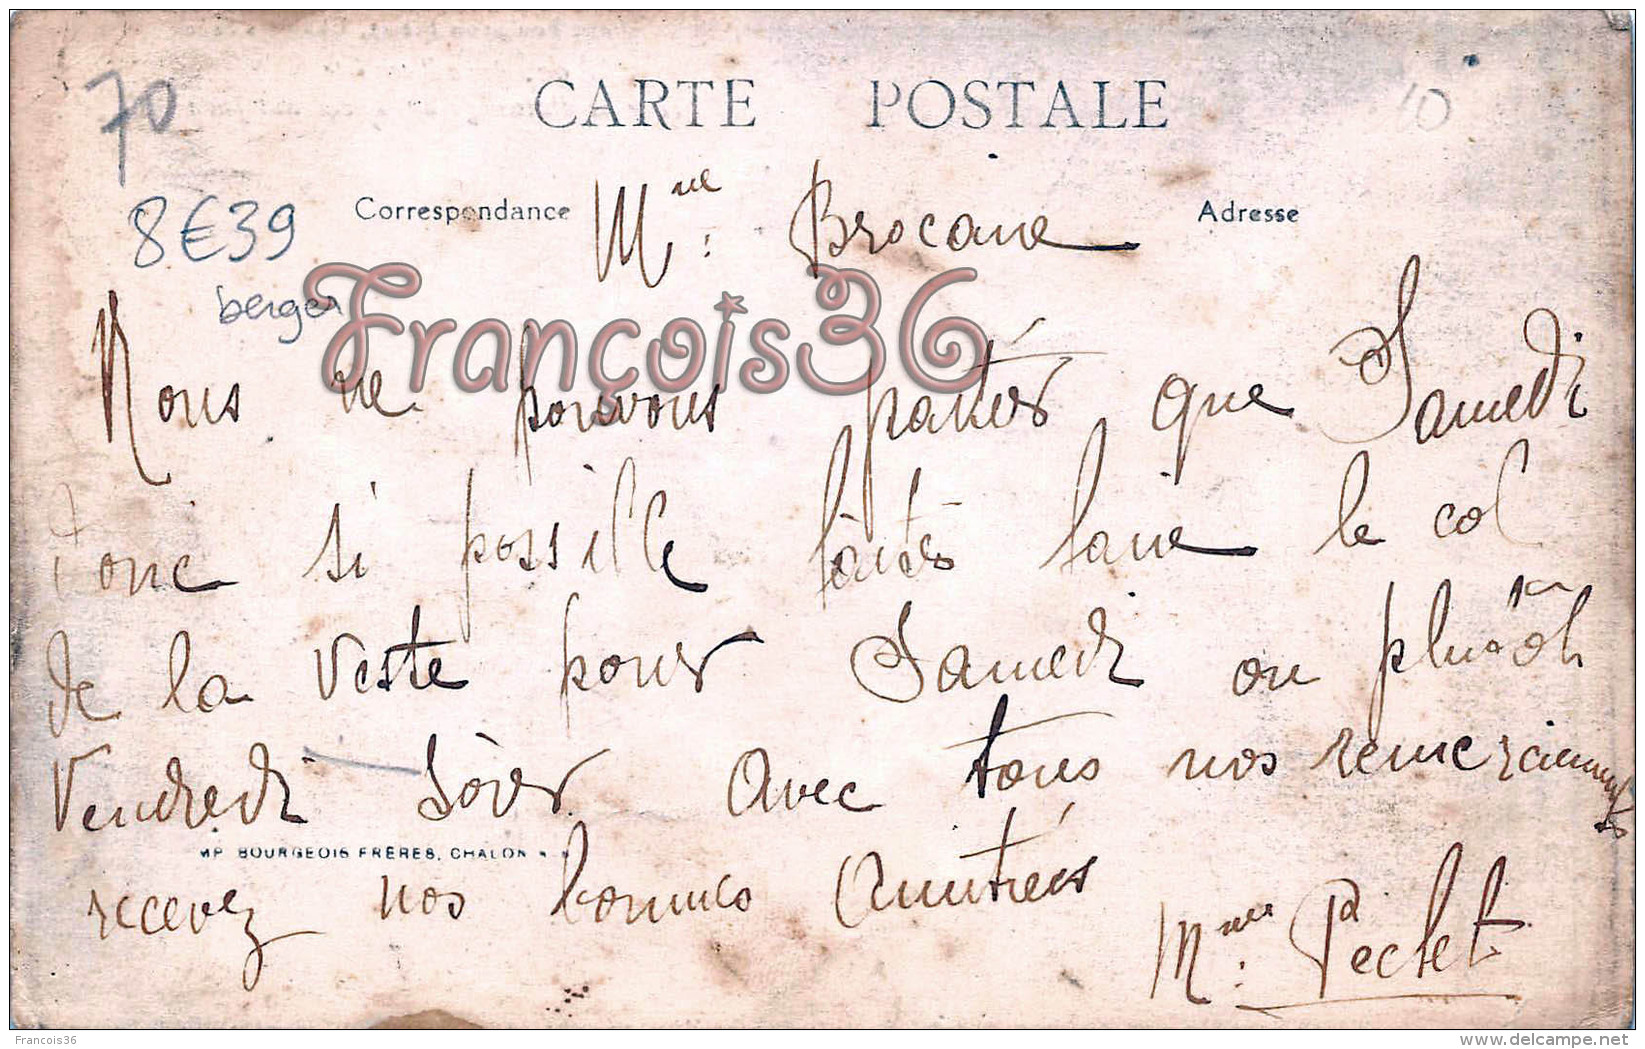 70
CARTE POSTALE
10
8€39
Correspondance
Mme: Brocane
Adresse
berger
François36
Nous ne pouvons partir que Samedi
Donc si possible faites faire le col
de la veste pour Samedi ou plutôt
Vendredi soir avec tous nos remerciements
IMP. BOURGEOIS FRÈRES, CHALON
recevez nos bonnes amitiés
Mme: Peclet
Francois36
delcampe.net